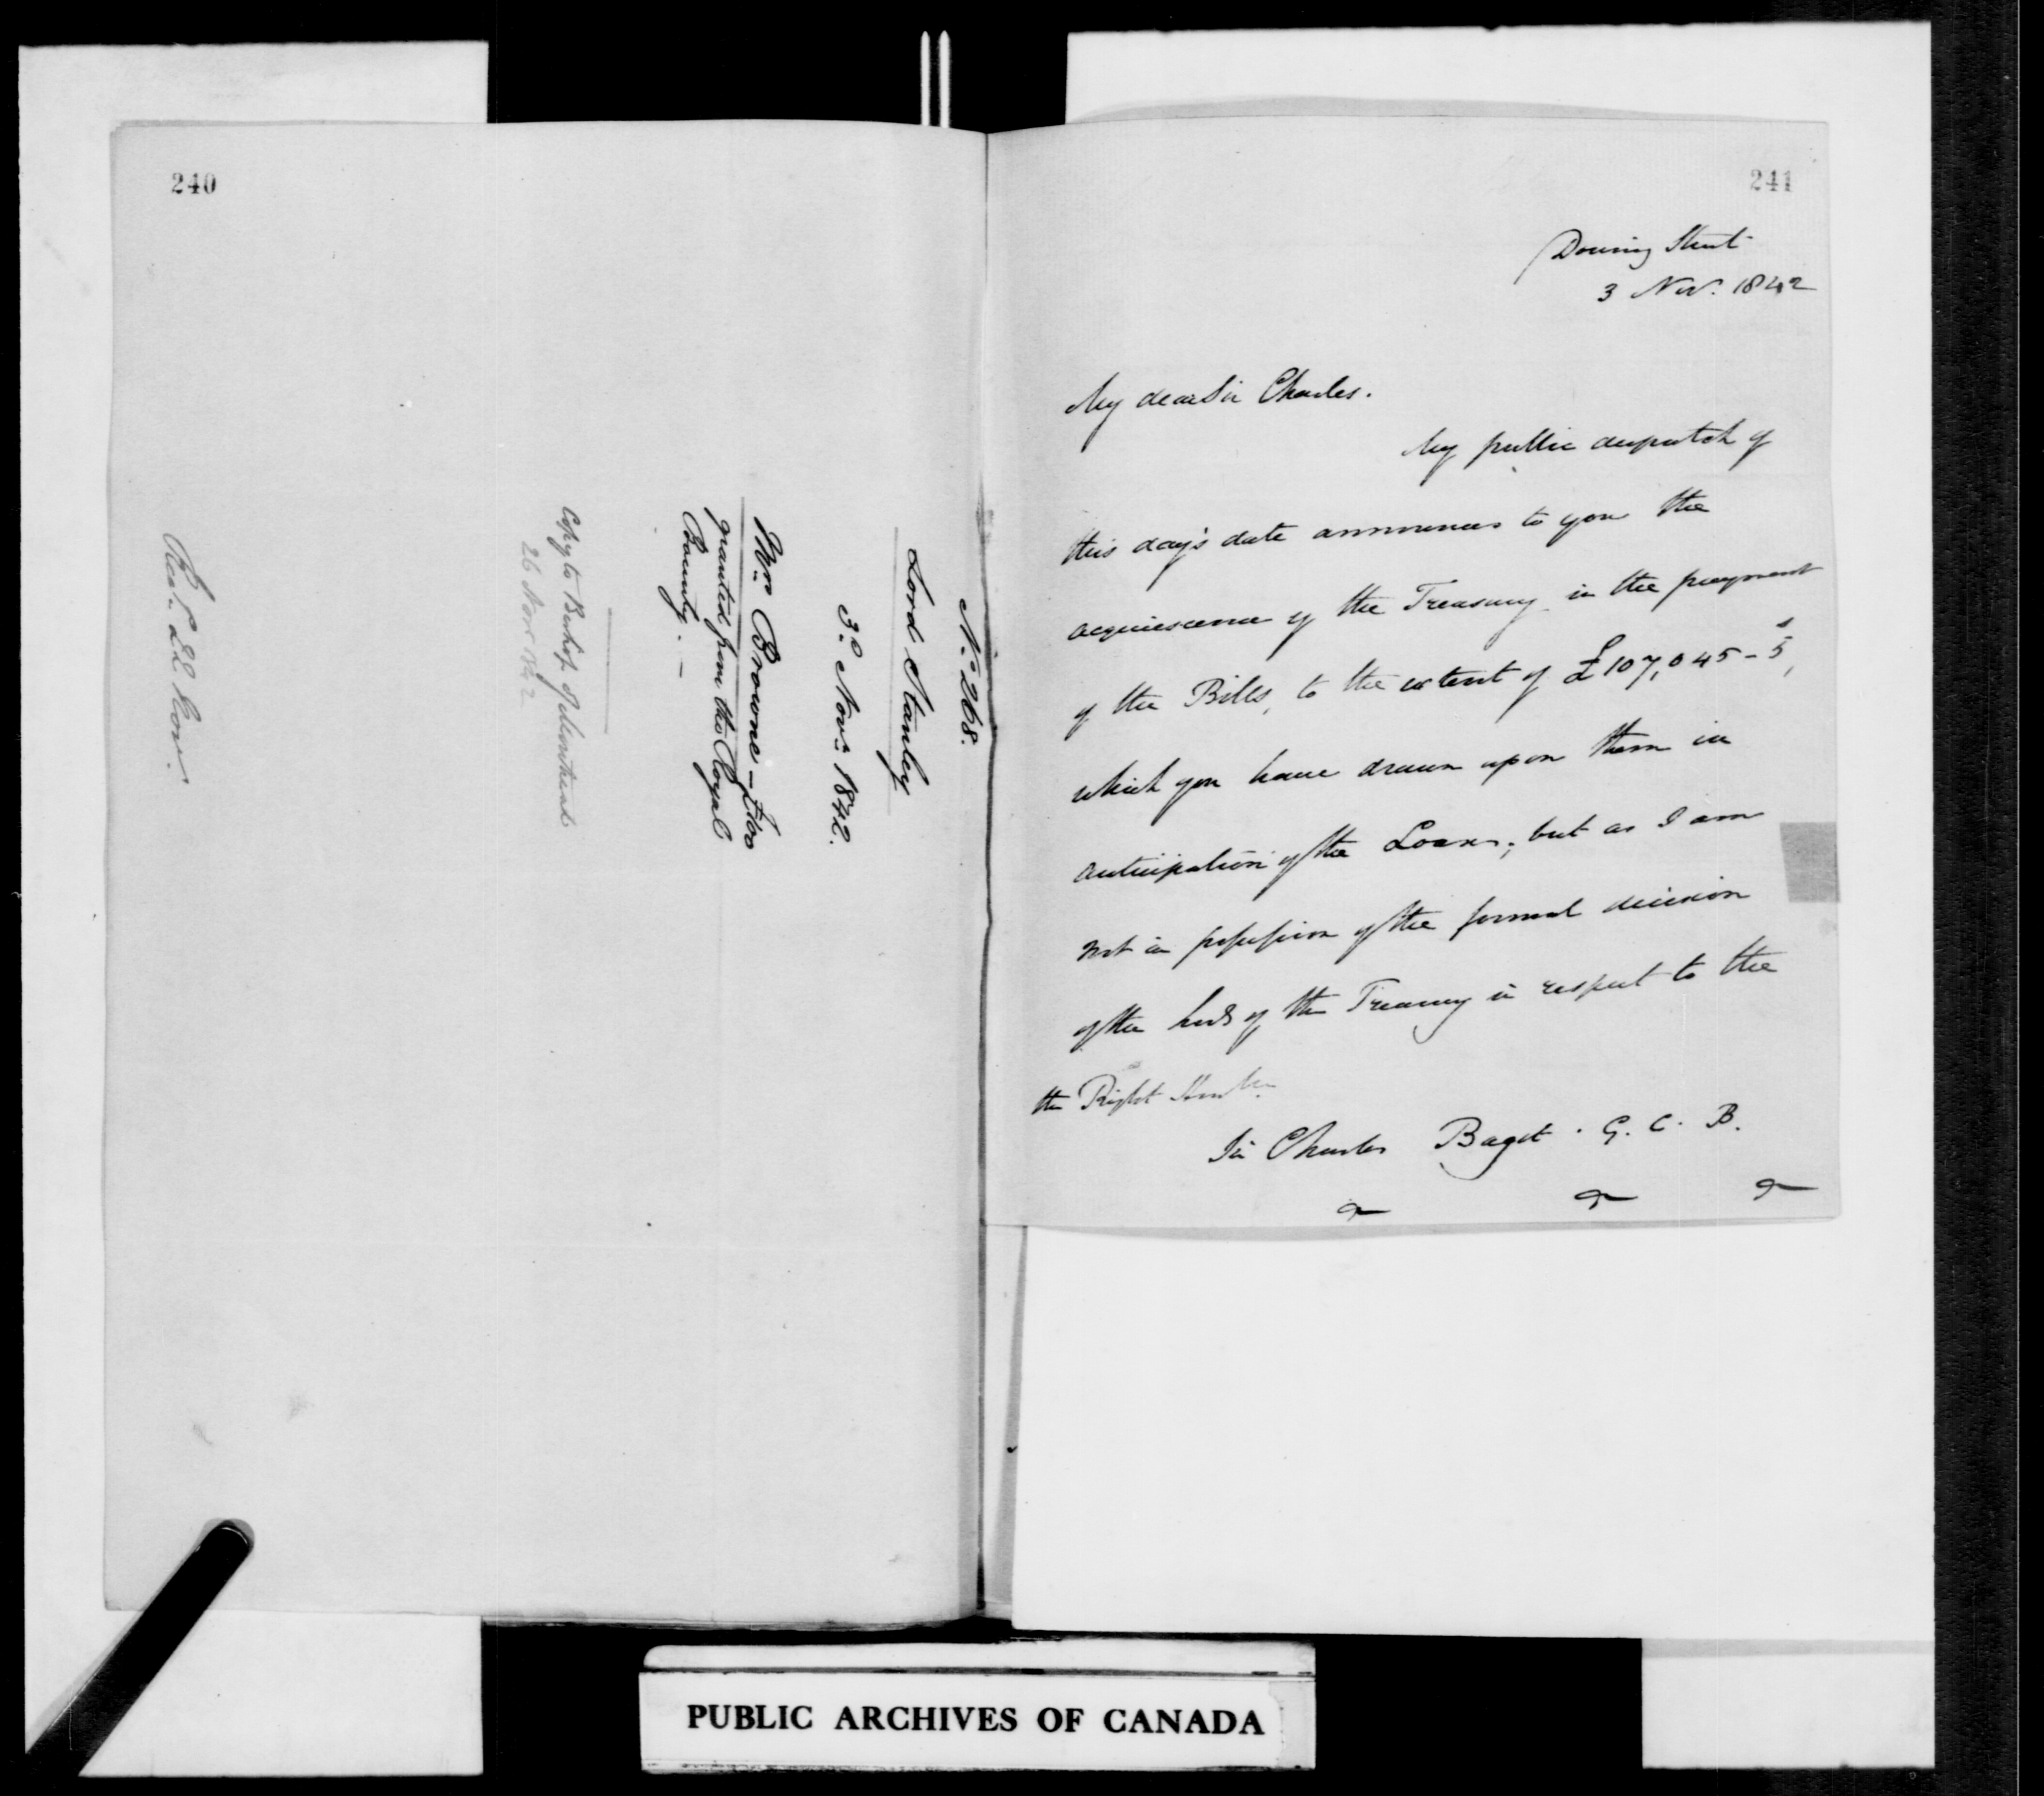 240
No. 268.
Lord Stanley
3d. Novr. 1842.
Mrs. Browne – £100
granted from the Royal
Bounty. –
Copy to Bishop of Montreal
26 Novr 1842
Recd. 22 Novr.
241
Downing Street
3 Nov. 1842
My dear Sir Charles.
My public despatch of
this day's date announces to you the
acquiescence of the Treasury in the payment
of the Bills, to the extent of £107,045-5s,
which you have drawn upon them in
anticipation of the Loan; but as I am
not in possession of the formal decision
of the Lords of the Treasury in respect to the
the Right Honble.
Sir Charles Bagot. G. C. B.
PUBLIC ARCHIVES OF CANADA